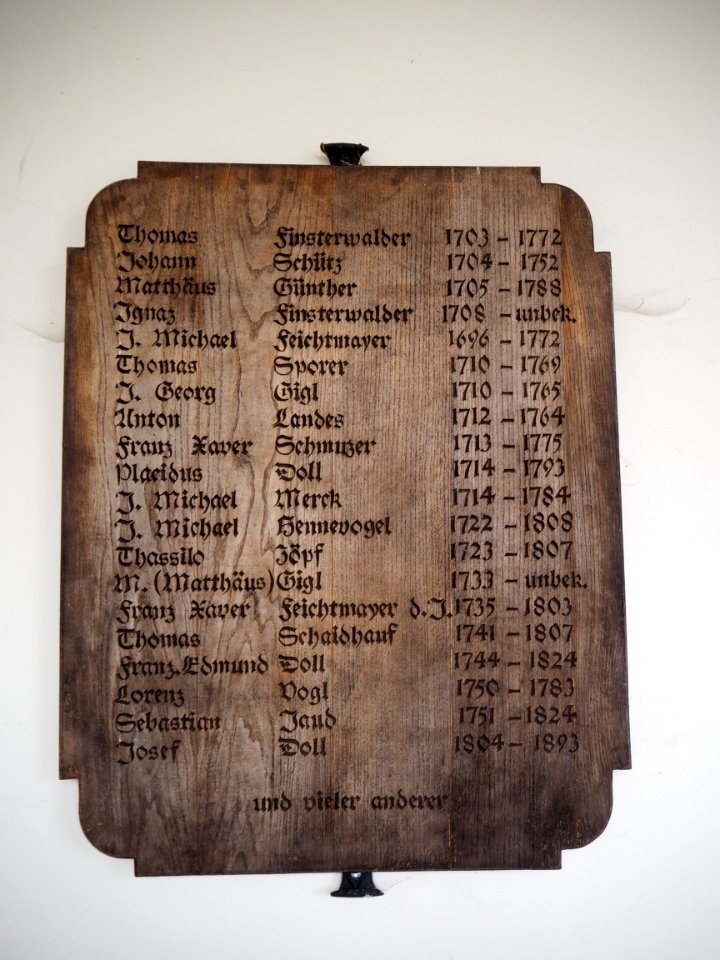 Thomas Finsterwalder 1703 – 1772
Johann Schütz 1704 – 1752
Matthäus Günther 1705 – 1788
Ignaz Finsterwalder 1708 – unbek.
J. Michael Feichtmayer 1696 – 1772
Thomas Sporer 1710 – 1769
J. Georg Gigl 1710 – 1765
Anton Landes 1712 – 1764
Franz Xaver Schmuzer 1713 – 1775
Placidus Doll 1714 – 1793
J. Michael Merck 1714 – 1784
J. Michael Hennevogel 1722 – 1808
Thassilo Zöpf 1723 – 1807
M. (Matthäus) Gigl 1733 – unbek.
Franz Xaver Feichtmayer d.J. 1735 – 1803
Thomas Schaidhauf 1741 – 1807
Franz.Edmund Doll 1744 – 1824
Lorenz Vogl 1750 – 1783
Sebastian Jaud 1751 – 1824
Josef Doll 1804 – 1893
und vieler anderer